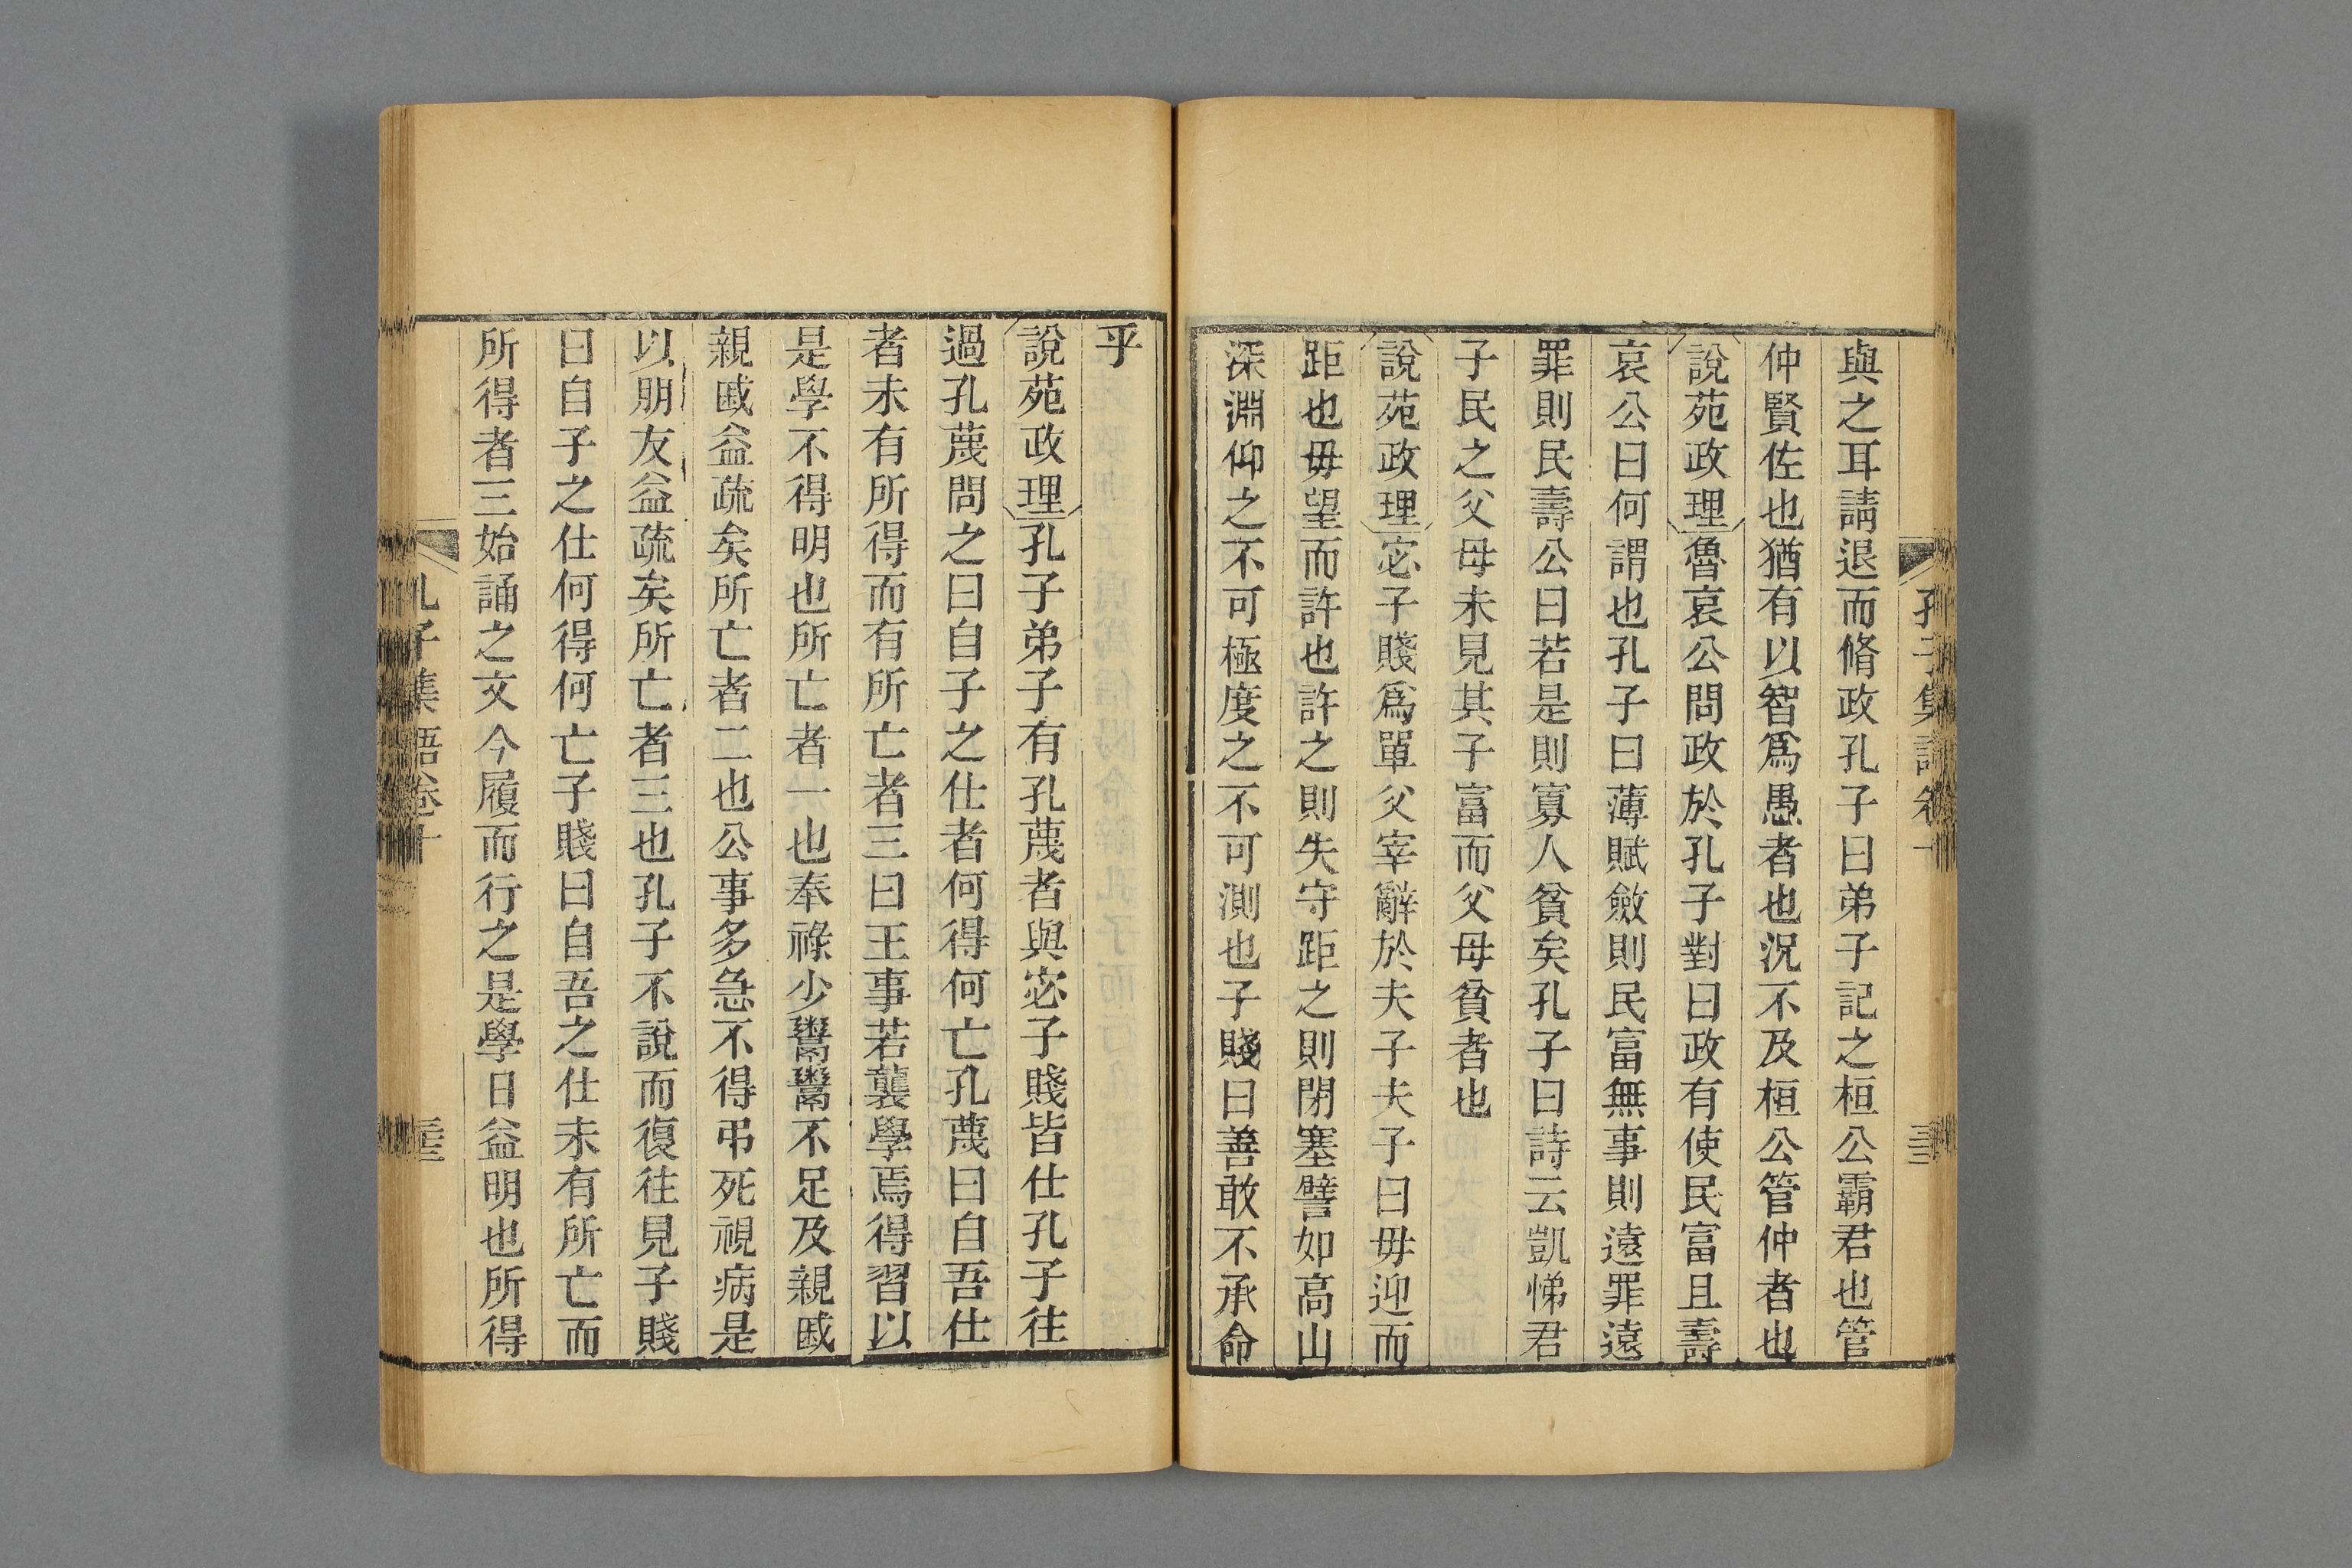 與之耳請退而脩政孔子曰弟子記之桓公霸君也管
仲賢佐也猶有以智爲愚者也況不及桓公管仲者也
說苑政理魯哀公問政於孔子對曰政有使民富且壽
哀公曰何謂也孔子曰薄賦斂則民富無事則遠罪遠
罪則民壽公曰若是則寡人貧矣孔子曰詩云凱悌君
子民之父母未見其子富而父母貧者也
說苑政理宓子賤爲單父宰辭於夫子夫子曰毋迎而
距也毋望而許也許之則失守距之則閉塞譬如高山
深淵仰之不可極度之不可測也子賤曰善敢不承命
乎
說苑政理孔子弟子有孔蔑者與宓子賤皆仕孔子往
過孔蔑問之曰自子之仕者何得何亡孔蔑曰自吾仕
者未有所得而有所亡者三曰王事若襲學焉得習以
是學不得明也所亡者一也奉祿少鬻鬻不足及親戚
親戚益疏矣所亡者二也公事多急不得弔死視病是
以朋友益疏矣所亡者三也孔子不說而復往見子賤
曰自子之仕何得何亡子賤曰自吾之仕未有所亡而
所得者三始誦之文今履而行之是學日益明也所得
孔子集語卷十